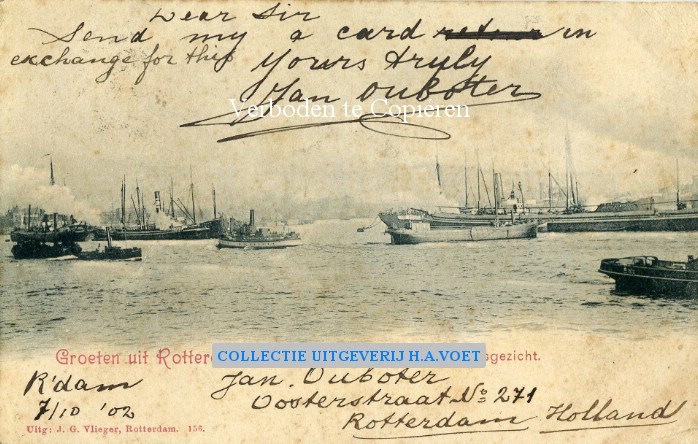 Dear Sir
Send my a card retour in
exchange for this
Yours truly
Jan Ouboter
Verboden te Copiëren
Groeten uit Rotter
COLLECTIE UITGEVERIJ H.A.VOET
sgezicht.
R'dam
7/10 '02
Jan. Ouboter
Oosterstraat No 271
Rotterdam Holland
Uitg: J. G. Vlieger, Rotterdam. 156.